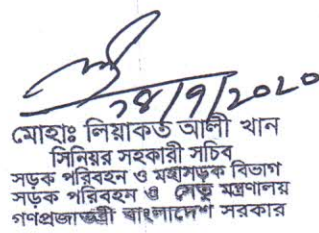 28/9/2020
মোহাঃ লিয়াকত আলী খান
সিনিয়র সহকারী সচিব
সড়ক পরিবহন ও মহাসড়ক বিভাগ
সড়ক পরিবহন ও সেতু মন্ত্রণালয়
গণপ্রজাতন্ত্রী বাংলাদেশ সরকার